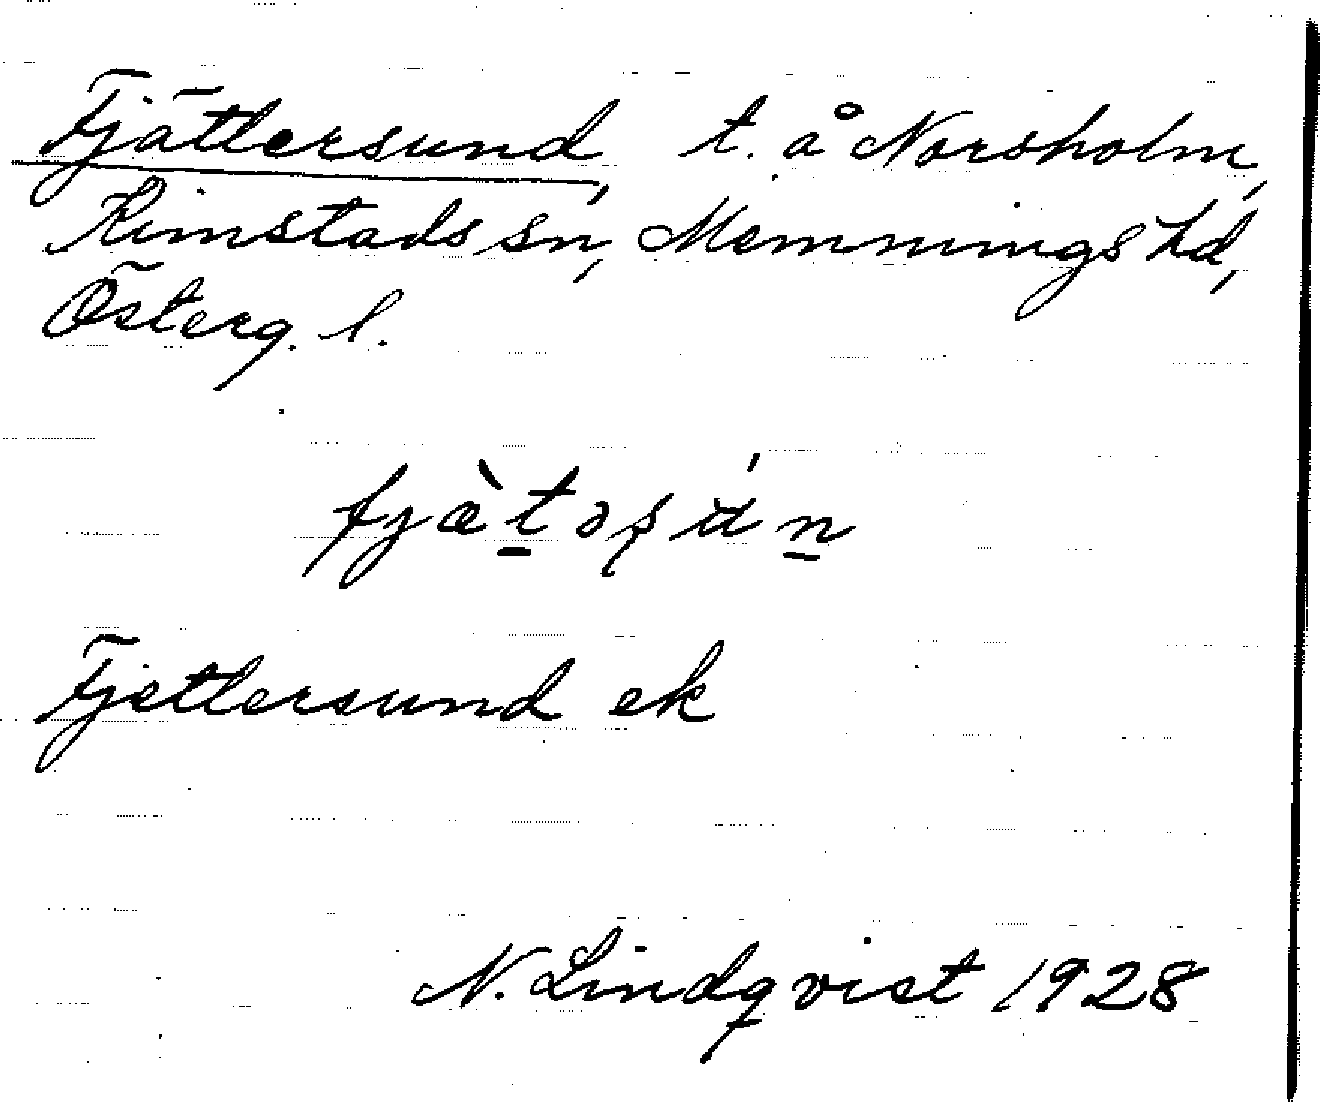 Fjättersund, t. å Norsholm,
Kimstads sn, Memmings hd,
Österg. l.
fjæ̀t̲əʂʉ́n̲
Fjettersund ek
N. Lindqvist 1928